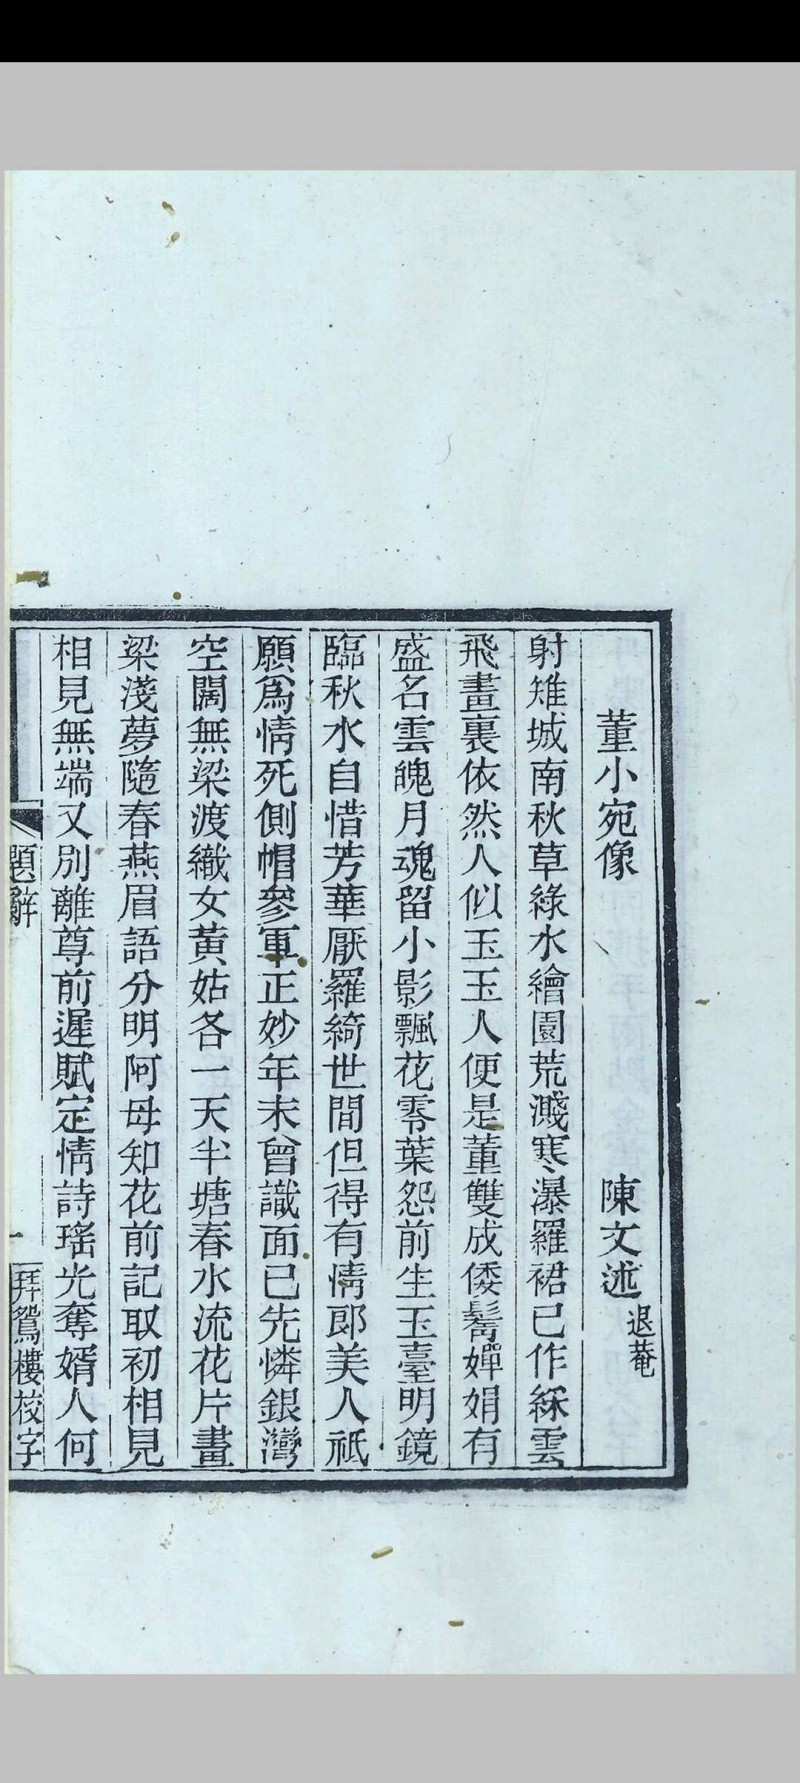 董小宛像 陳文述退菴
射雉城南秋草綠水繪園荒濺寒瀑羅裙已作綵雲
飛畫裏依然人似玉玉人便是董雙成倭鬌嬋娟有
盛名雲魄月魂留小影飄花零葉怨前生玉臺明鏡
臨秋水自惜芳華厭羅綺世間但得有情郎美人祇
願爲情死側帽參軍正妙年未曾識面已先憐銀灣
空闊無梁渡織女黃姑各一天半塘春水流花片畫
梁淺夢隨春燕眉語分明阿母知花前記取初相見
相見無端又別離尊前遲賦定情詩瑤光奪婿人何
題辭 一 拜鴛樓校字